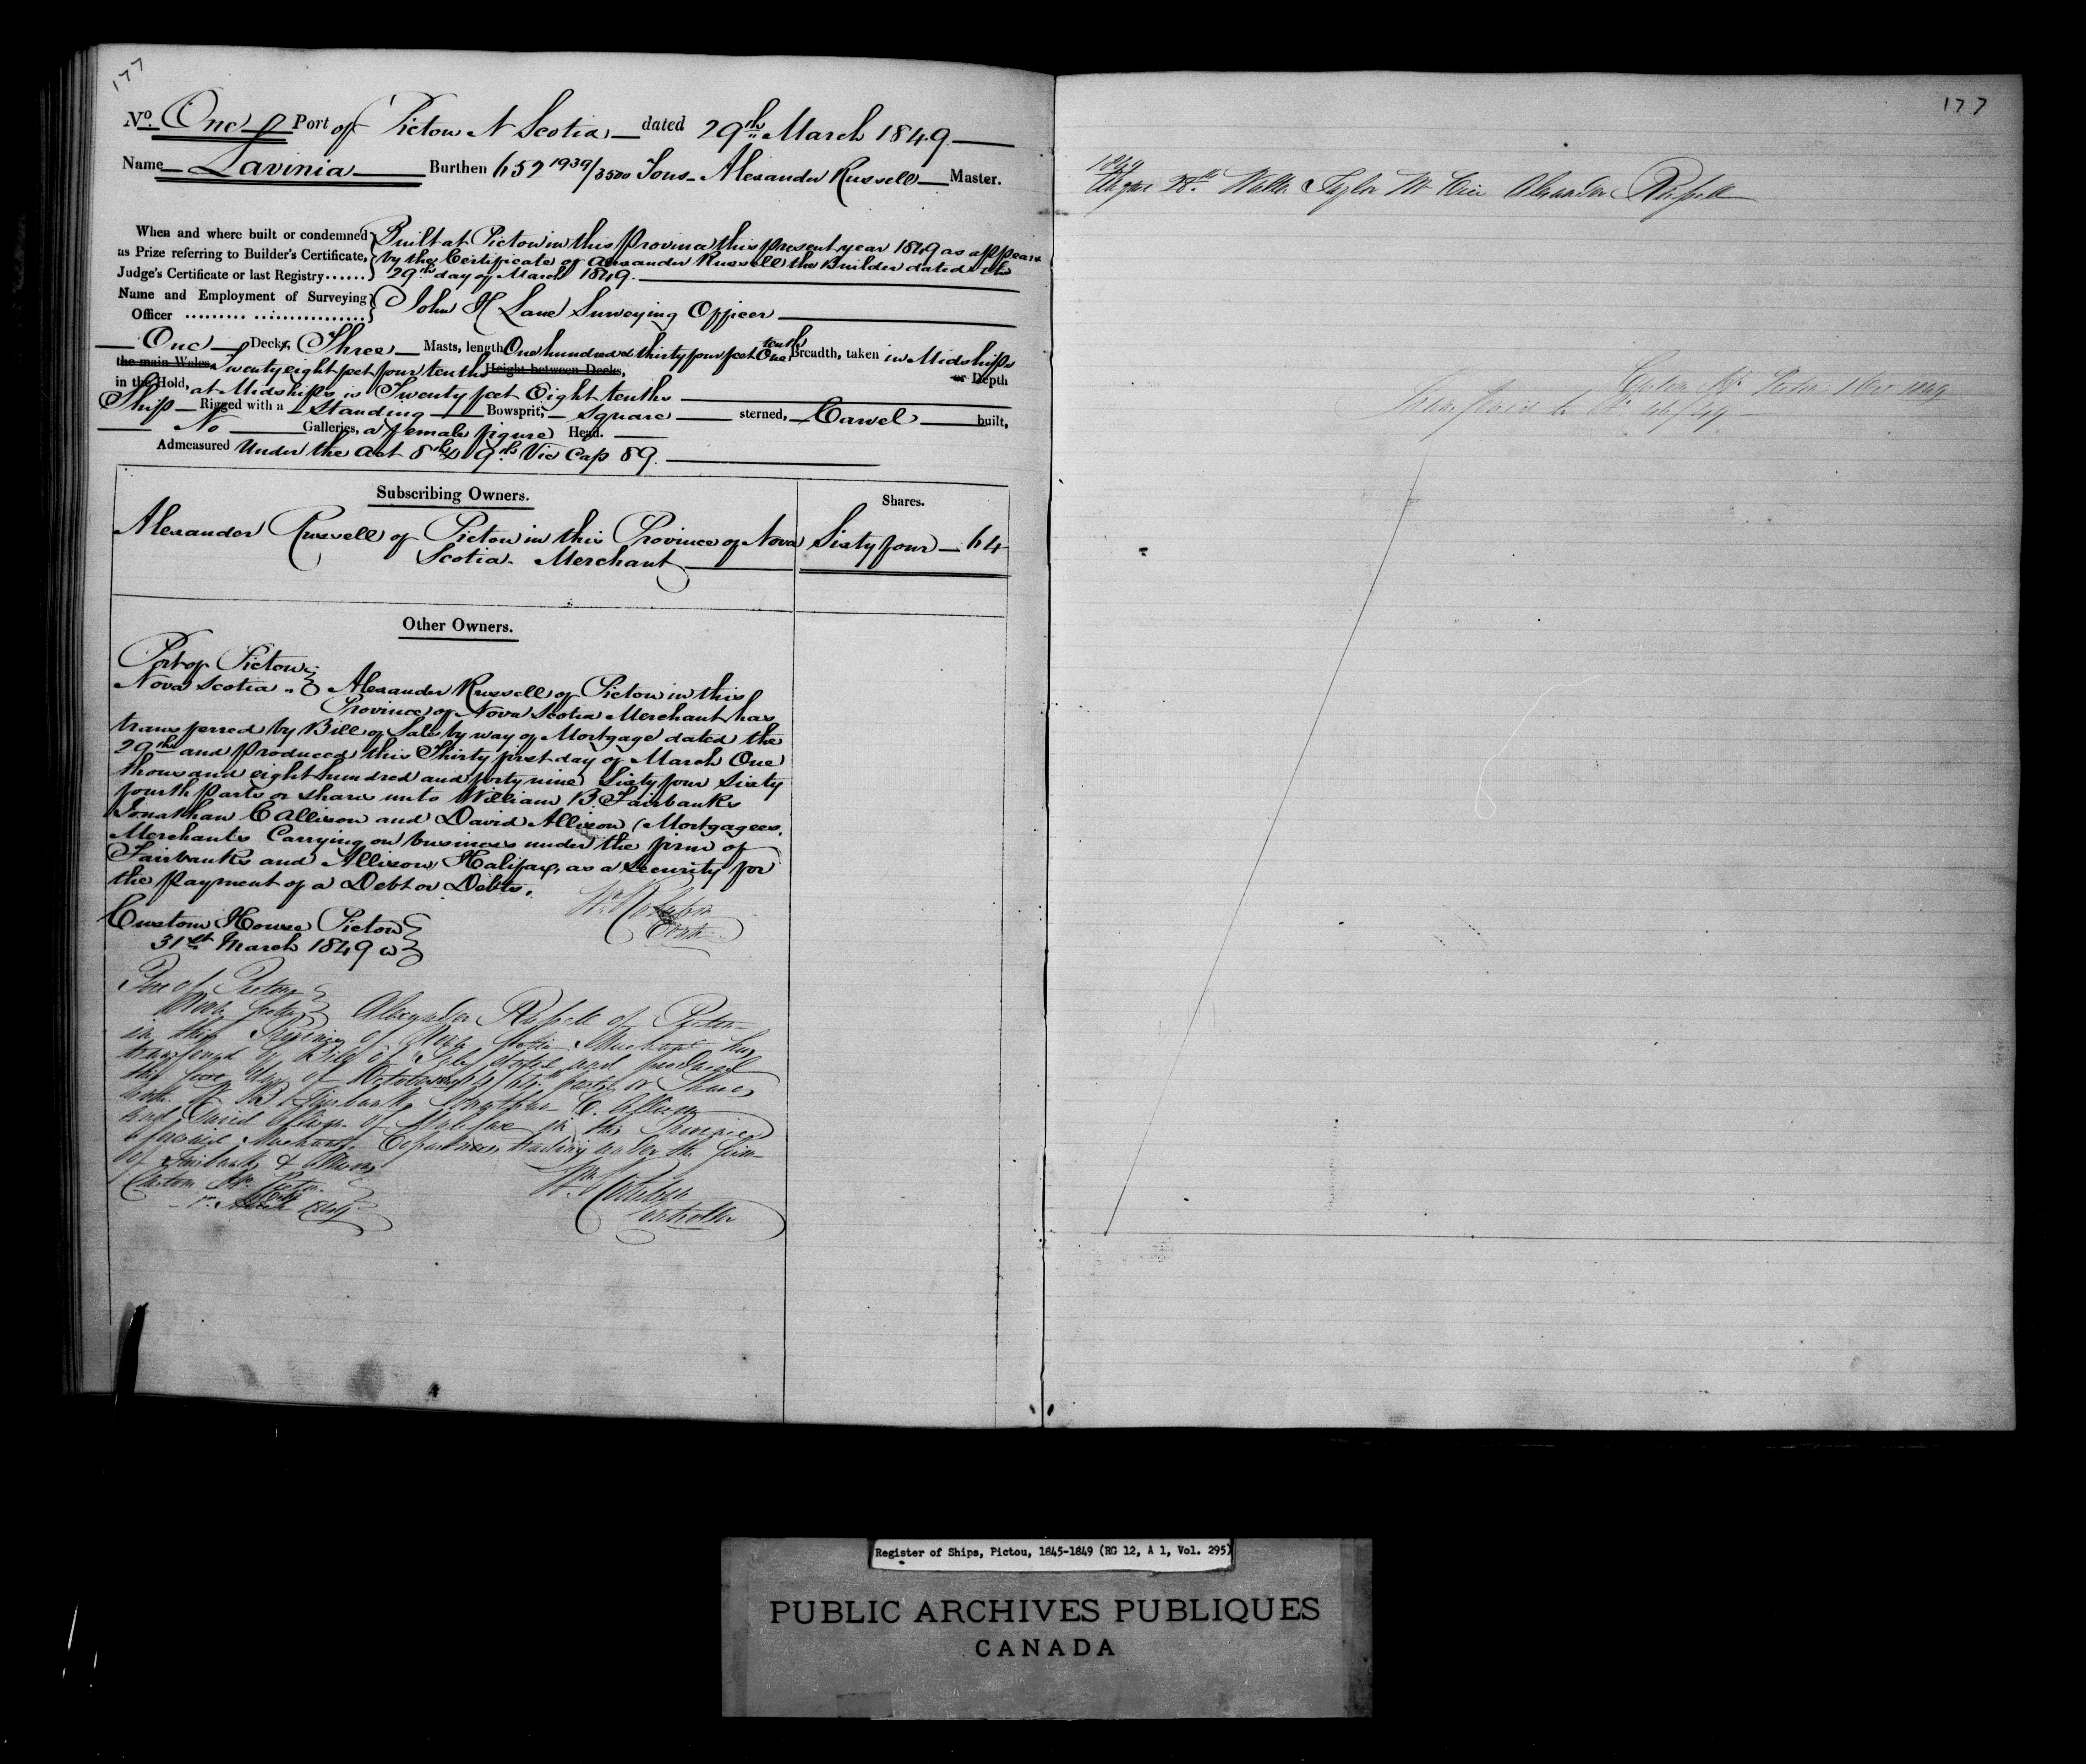 177
No. One Port of Pictou N Scotia dated 29th March 1849
Name Lavinia Burthen 652 1939/3500 Tons Alexander Russell Master.
When and where built or condemned as Prize referring to Builder's Certificate, Judge's Certificate or last Registry......
Built at Pictou in this Province this present year 1849 as appears
by the Certificate of Alexander Russell the Builder dated the
29th day of March 1849.
Name and Employment of Surveying Officer
John H Lane Surveying Officer
One Decks, Three Masts, length One hundred & thirty four feet One tenth Breadth, taken in Midships
the main Wales, Twenty eight feet four tenths Height between Decks, or Depth
in the Hold, at Midships is Twenty feet Eight tenths
Ship Rigged with a Standing Bowsprit, square sterned, Carvel built,
No Galleries, a female figure Head.
Admeasured Under the Act 8th & 9th Vic Cap 89.
Subscribing Owners. Shares.
Alexander Russell of Pictou in this Province of Nova Sixty four — 64
Scotia Merchant
Other Owners.
Port of Pictou
Nova Scotia Alexander Russell of Pictou in this
Province of Nova Scotia Merchant has
transferred by Bill of Sale by way of Mortgage dated the
29th and Produced this Thirty first day of March One
thousand eight hundred and forty nine Sixty four Sixty
fourth Parts or shares unto William B Fairbanks
Jonathan C Allison and David Allison (Mortgagees,
Merchants Carrying on business under the firm of
Fairbanks and Allison Halifax, as a Security for
the Payment of a Debt or Debts.
Custom House Pictou
31st March 1849
Port of Pictou
Nova Scotia Alexander Russell of Pictou
in this Province of Nova Scotia Merchant has
transferred by Bill of Sale dated and produced
this first day of October 64/64th parts or Shares
unto W B Fairbanks Jonathan C. Allison
and David Allison of Halifax in the Province
aforesaid Merchants Copartners, trading under the firm
of Fairbanks & Allison
Custom Ho. Pictou
1849
Controller
177
1849
28th Walter Taylor Alexander Russell
Custom Ho. Pictou 1849
Register of Ships, Pictou, 1845-1849 (RG 12, A 1, Vol. 295)
PUBLIC ARCHIVES PUBLIQUES
CANADA